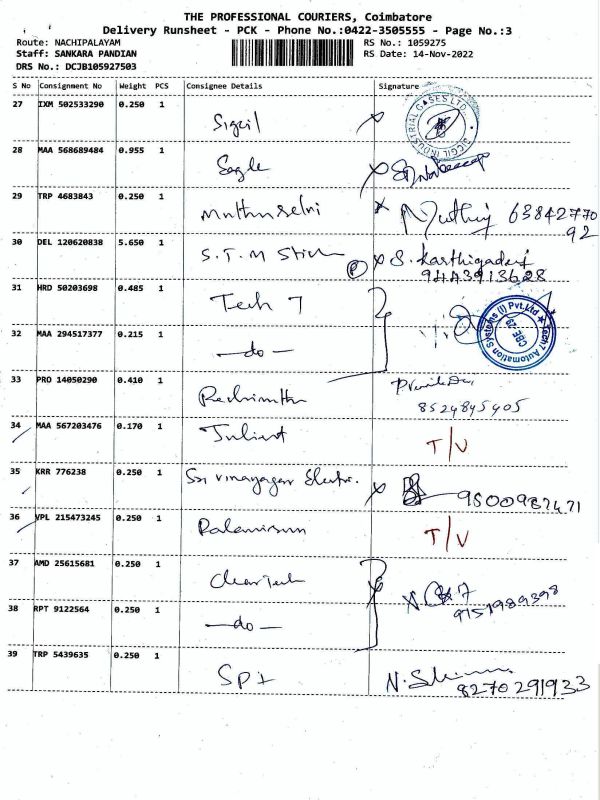 THE PROFESSIONAL COURIERS, Coimbatore
Delivery Runsheet - PCK - Phone No.:0422-3505555 - Page No.:3
Route: NACHIPALAYAM RS No.: 1059275
Staff: SANKARA PANDIAN RS Date: 14-Nov-2022
DRS No.: DCJB105927503
S No Consignment No Weight PCS Consignee Details Signature
27 IXM 502533290 0.250 1 Sigcil SICGIL INDUSTRIAL GASES LTD.
28 MAA 568689484 0.955 1 Eagle
29 TRP 4683843 0.250 1 Muthuselvi 63842770
92
30 DEL 120620838 5.650 1 S.T.M P S. Karthigadevi
31 HRD 50203698 0.485 1 Tech 7 Tech7 Automation Systems (I) Pvt.Ltd
CBE - 29
32 MAA 294517377 0.215 1 -do-
33 PRO 14050290 0.410 1
8524845405
34 MAA 567203476 0.170 1 T/V
35 KRR 776238 0.250 1 Sri Vinayagar Electri.
36 VPL 215473245 0.250 1 T/V
37 AMD 25615681 0.250 1 CleanTech
9751989398
38 RPT 9122564 0.250 1 -do-
39 TRP 5439635 0.250 1
8270291933